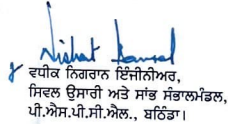 Nishat Bansal
ਵਧੀਕ ਨਿਗਰਾਨ ਇੰਜੀਨੀਅਰ,
ਸਿਵਲ ਉਸਾਰੀ ਅਤੇ ਸਾਂਭ ਸੰਭਾਲਮੰਡਲ,
ਪੀ.ਐਸ.ਪੀ.ਸੀ.ਐਲ., ਬਠਿੰਡਾ।